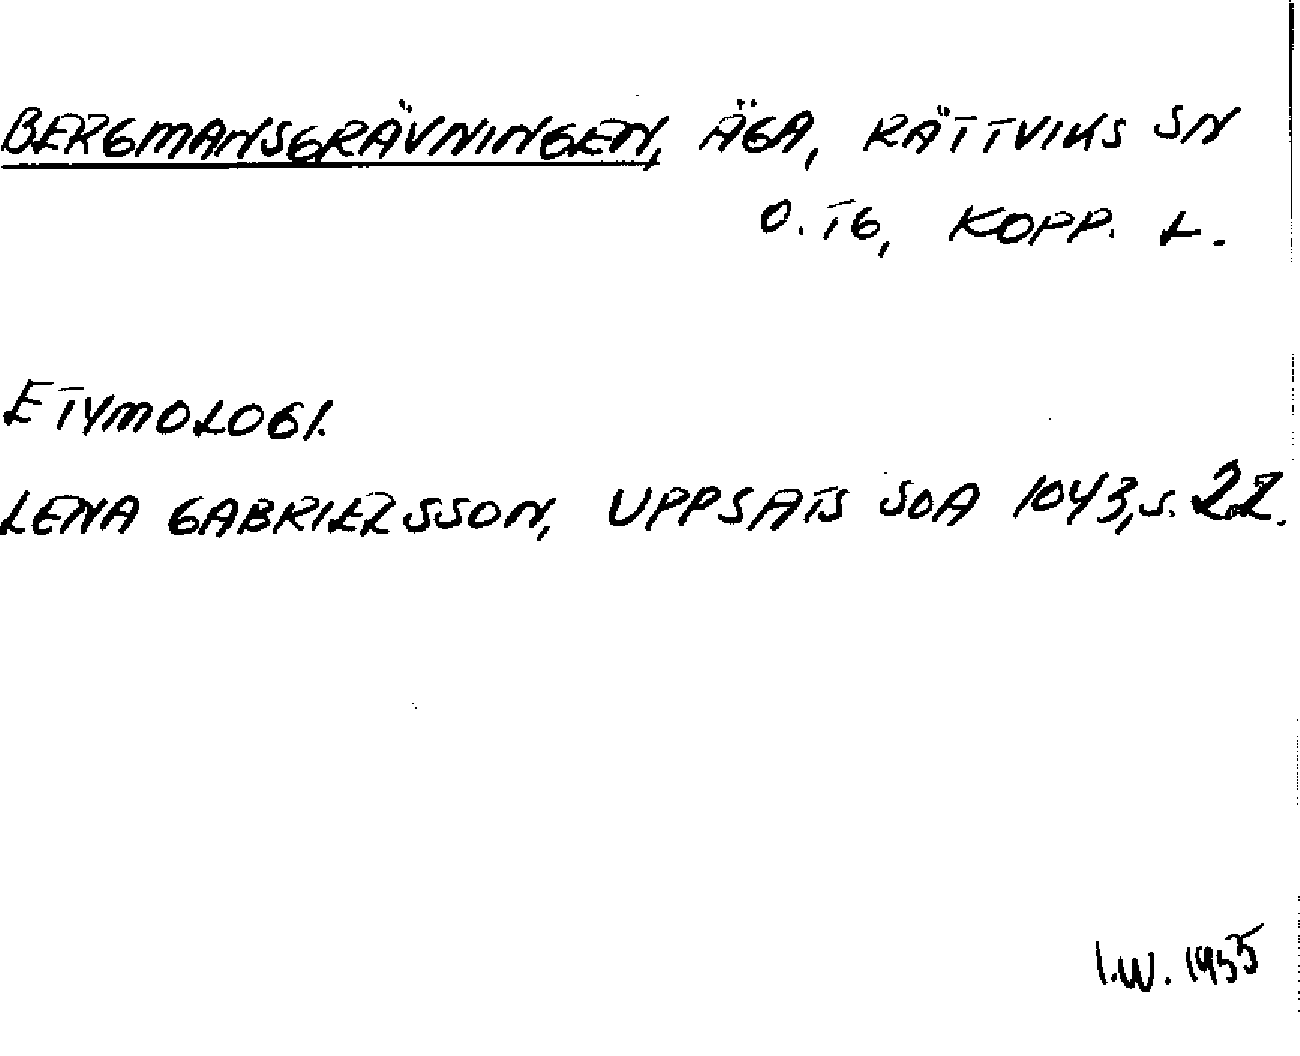 BERGMANSGRÄVNINGEN, ÄGA, RÄTTVIKS SN
O. TG, KOPP. L.
ETYMOLOGI.
LENA GABRIELSSON, UPPSATS SOA 1043, S. 22.
I.W. 1955